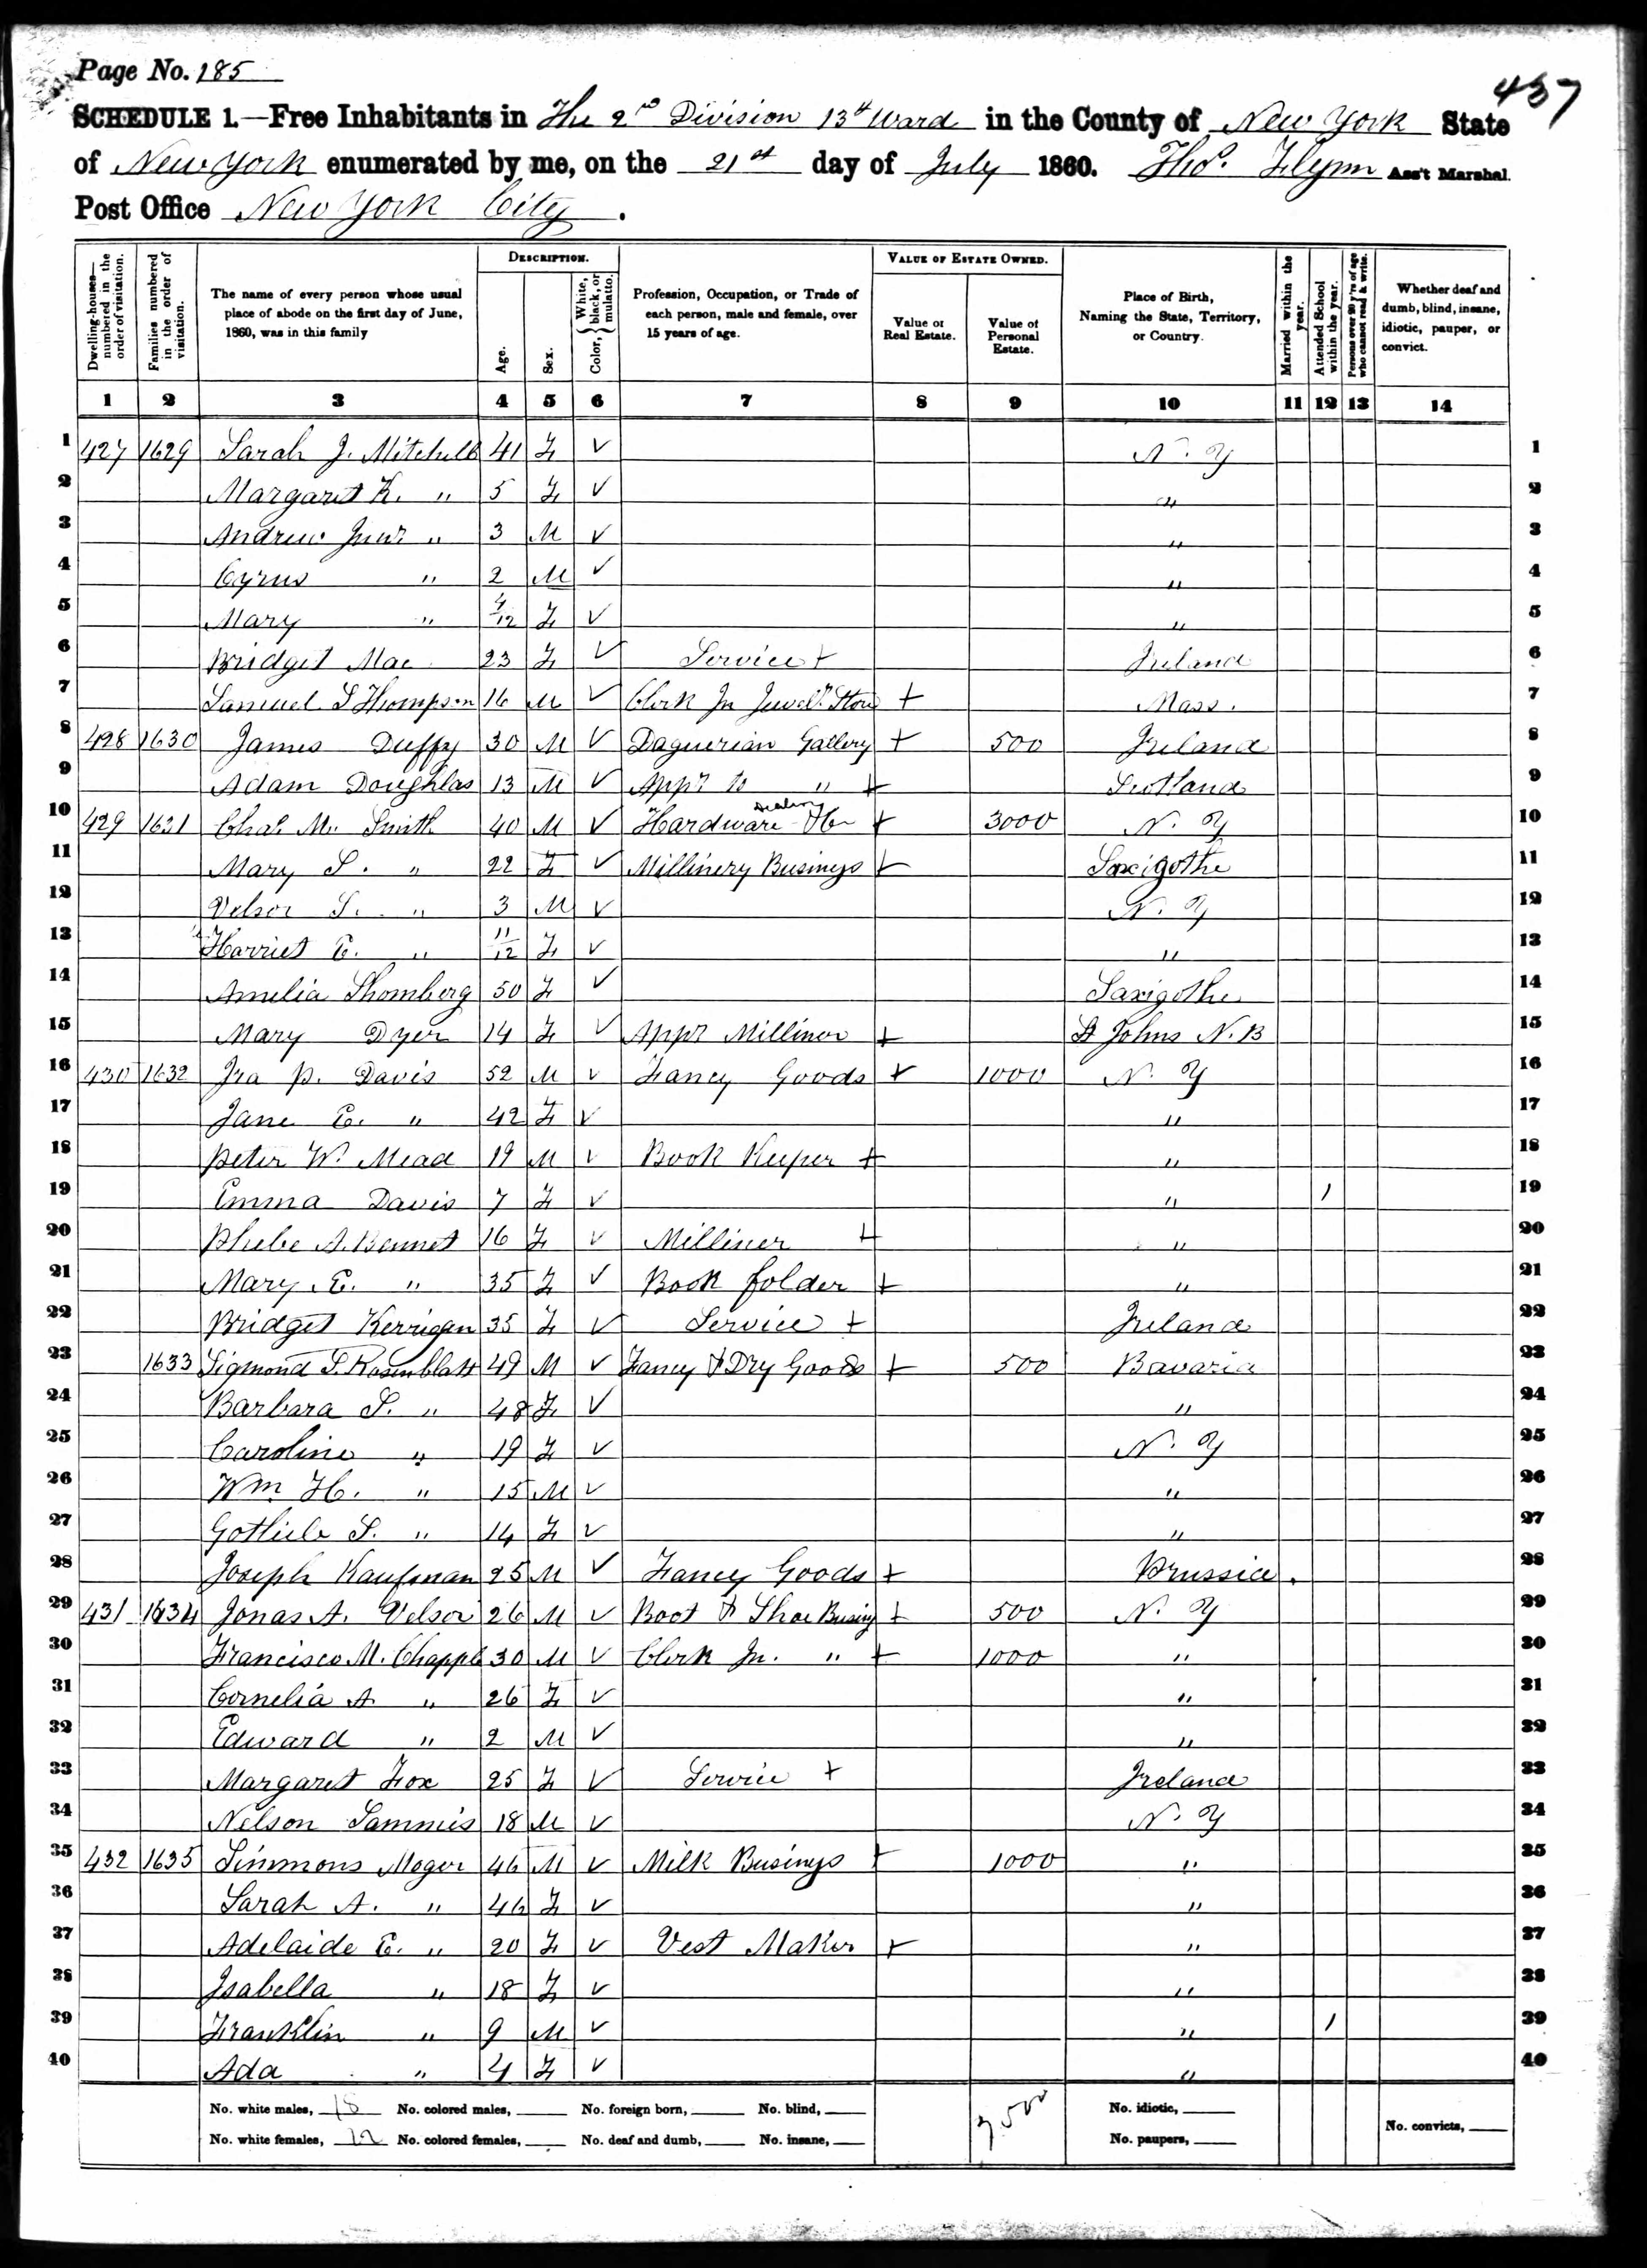 Page No. 185
437
SCHEDULE 1.—Free Inhabitants in The 2nd Division 13th Ward in the County of New York State
of New York enumerated by me, on the 21st day of July 1860. Thos. Flynn Ass't Marshal.
Post Office New York City.
Dwelling-houses—numbered in the order of visitation.
Families numbered in the order of visitation.
The name of every person whose usual place of abode on the first day of June, 1860, was in this family
DESCRIPTION.
Age.
Sex.
Color, White, black, or mulatto.
Profession, Occupation, or Trade of each person, male and female, over 15 years of age.
VALUE OF ESTATE OWNED.
Value of Real Estate.
Value of Personal Estate.
Place of Birth, Naming the State, Territory, or Country.
Married within the year.
Attended School within the year.
Persons over 20 y'rs of age who cannot read & write.
Whether deaf and dumb, blind, insane, idiotic, pauper, or convict.
1 2 3 4 5 6 7 8 9 10 11 12 13 14
1 427 1629 Sarah J. Mitchell 41 F ✓ N. Y 1
2 Margaret K. " 5 F ✓ " 2
3 Andrew Junr " 3 M ✓ " 3
4 Cyrus " 2 M ✓ " 4
5 Mary " 4/12 F ✓ " 5
6 Bridget Mac 23 F ✓ Service + Ireland 6
7 Samuel S Thompson 16 M ✓ Clerk In Jewel. Store + Mass. 7
8 428 1630 James Duffy 30 M ✓ Daguerian Gallery + 500 Ireland 8
9 Adam Doughlas 13 M ✓ Appr to " + Scotland 9
10 429 1631 Chas. M. Smith 40 M ✓ Hardware dealing + 3000 N. Y 10
11 Mary S. " 22 F ✓ Millinery Business + Saxigothe 11
12 Velsor S. " 3 M ✓ N. Y 12
13 Harriet E. " 11/12 F ✓ " 13
14 Amelia Shomberg 50 F ✓ Saxigothe 14
15 Mary Dyer 14 F ✓ Appr Milliner + St Johns N. B 15
16 430 1632 Ira P. Davis 52 M ✓ Fancy Goods + 1000 N. Y 16
17 Jane E. " 42 F ✓ " 17
18 Peter W. Mead 19 M ✓ Book Keeper + " 18
19 Emma Davis 7 F ✓ " 1 19
20 Phebe A. Bennet 16 F ✓ Milliner + " 20
21 Mary E. " 35 F ✓ Book folder + " 21
22 Bridget Kerrigan 35 F ✓ Service + Ireland 22
23 1633 Sigmond S. Rosenblatt 49 M ✓ Fancy & Dry Goods + 500 Bavaria 23
24 Barbara S. " 48 F ✓ " 24
25 Caroline " 19 F ✓ N. Y 25
26 Wm H. " 15 M ✓ " 26
27 Gotlieb S. " 14 F ✓ " 27
28 Joseph Kaufman 25 M ✓ Fancy Goods + Prussia. 28
29 431 1634 Jonas A. Velsor 26 M ✓ Boot & Shoe Businy + 500 N. Y 29
30 Francisco M. Chapple 30 M ✓ Clerk In. " + 1000 " 30
31 Cornelia A " 26 F ✓ " 31
32 Edward " 2 M ✓ " 32
33 Margaret Fox 25 F ✓ Service + Ireland 33
34 Nelson Sammis 18 M ✓ N. Y 34
35 432 1635 Simmons Moger 46 M ✓ Milk Business + 1000 " 35
36 Sarah A. " 46 F ✓ " 36
37 Adelaide E. " 20 F ✓ Vest Maker + " 37
38 Isabella " 18 F ✓ " 38
39 Franklin " 9 M ✓ " 1 39
40 Ada " 4 F ✓ " 40
No. white males, 18 No. colored males, No. foreign born, No. blind, 7500 No. idiotic,
No. white females, No. colored females, No. deaf and dumb, No. insane, No. paupers, No. convicts,